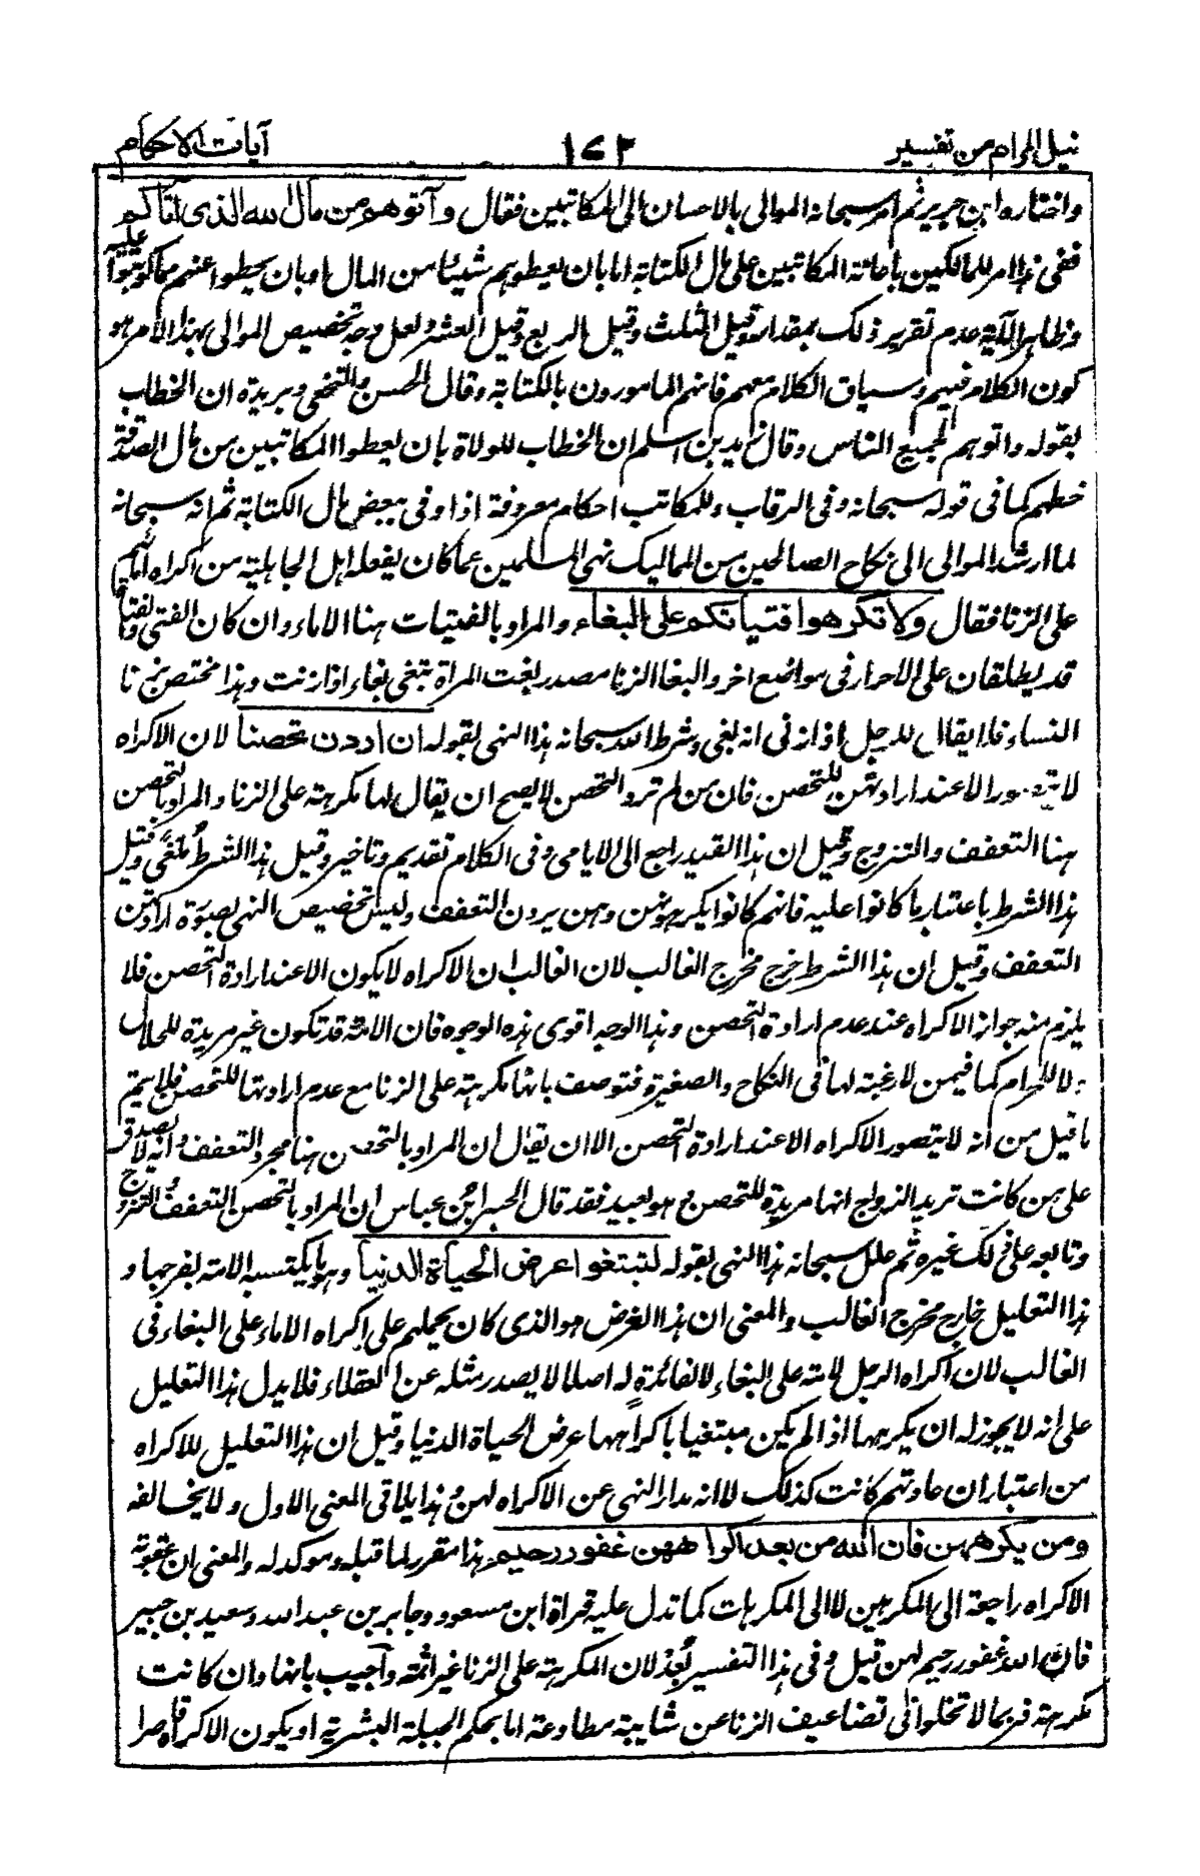 نيل المرام من تفسير ١٧٣ آيات الاحكام
واختاره ابن جرير ثم امر سبحانه الموالى بالاحسان الى المكاتبين فقال وآتوهم من مال الله الذى اتاكم
ففى هذا امر للمالكين باعانة المكاتبين على مال الكتابة اما بان يعطوهم شيئا من المال او بان يحطوا عنهم مما كوتبوا عليه
وظاهر الآية عدم تقرير ذلك بمقدار وقيل الثلث وقيل الربع وقيل العشر ولعل وجه تخصيص الموالى بهذا الامر هو
كون الكلام فيهم وسياق الكلام معهم فانهم المامورون بالكتابة وقال الحسن والنخعى وبريدة ان الخطاب
بقوله واتوهم لجميع الناس وقال زيد بن اسلم ان الخطاب للولاة بان يعطوا المكاتبين من مال الصدقة
حظهم كما فى قوله سبحانه وفى الرقاب وللمكاتب احكام معروفة اذا وفى ببعض مال الكتابة ثم انه سبحانه
لما ارشد الموالى الى نكاح الصالحين من المماليك نهى المسلمين عما كان يفعله اهل الجاهلية من اكراه امائهم
على الزنا فقال ولا تكرهوا فتياتكم على البغاء والمراد بالفتيات هنا الاماء وان كان الفتى والفتاة
قد يطلقان على الاحرار فى مواضع اخر والبغا الزنا مصدر بغت المراة تبغى بغاء اذا زنت وهذا مختص بزنا
النساء فلا يقال للرجل اذا زنى انه بغى وشرط الله سبحانه هذا النهى بقوله ان اردن تحصنا لان الاكراه
لا يتصور الا عند ارادتهن للتحصن فان من لم ترد التحصن لا يصح ان يقال لها مكرهة على الزنا والمراد بالتحصن
هنا التعفف والتزوج وقيل ان هذا القيد راجع الى الايامى وفى الكلام تقديم وتاخير وقيل هذا الشرط ملغى وقيل
هذا الشرط باعتبار ما كانوا عليه فانهم كانوا يكرهونهن وهن يردن التعفف وليس تخصيص النهى بصورة ارادتهن
التعفف وقيل ان هذا الشرط خرج مخرج الغالب لان الغالب ان الاكراه لا يكون الا عند ارادة التحصن فلا
يلزم منه جواز الاكراه عند عدم ارادة التحصن وهذا الوجه اقوى هذه الوجوه فان الامة قد تكون غير مريدة للحلال
ولا للحرام كما فيمن لا رغبة لها فى النكاح والصغيرة فتوصف بانها مكرهة على الزنا مع عدم ارادتها للتحصن فلا يتم
ما قيل من انه لا يتصور الاكراه الا عند ارادة التحصن الا ان يقال ان المراد بالتحصن هنا مجرد التعفف وانه لا يصدق
على من كانت تريد الزواج انها مريدة للتحصن وهو بعيد فقد قال الحبر ابن عباس ان المراد بالتحصن التعفف والتزوج
وتابعه على ذلك غيره ثم علل سبحانه هذا النهى بقوله لتبتغوا عرض الحياة الدنيا وهو ما يكتسبه الامة بفرجها و
هذا التعليل خارج مخرج الغالب والمعنى ان هذا العرض هو الذى كان يحملهم على اكراه الاماء على البغاء فى
الغالب لان اكراه الرجل لامته على البغاء لا لفائدة له اصلا لا يصدر مثله عن العقلاء فلا يدل هذا التعليل
على انه لا يجوز له ان يكرهها اذا لم يكن مبتغيا باكراهها عرض الحياة الدنيا وقيل ان هذا التعليل للاكراه
من اعتبار ان عادتهم كانت كذلك لا انه مدار النهى عن الاكراه لهن وهذا يلاقى المعنى الاول ولا يخالفه
ومن يكرههن فان الله من بعد اكراههن غفور رحيم هذا مقرر لما قبله وموكد له والمعنى ان عقوبة
الاكراه راجعة الى المكرهين لا الى المكرهات كما تدل عليه قراة ابن مسعود وجابر بن عبد الله وسعيد بن جبير
فان الله غفور رحيم لهن قيل وفى هذا التفسير بعد لان المكرهة على الزنا غير اثمة واجيب بانها وان كانت
مكرهة فربما لا تخلو فى تضاعيف الزنا عن شايبة مطاوعة اما بحكم الجبلة البشرية او يكون الاكراه قاصرا